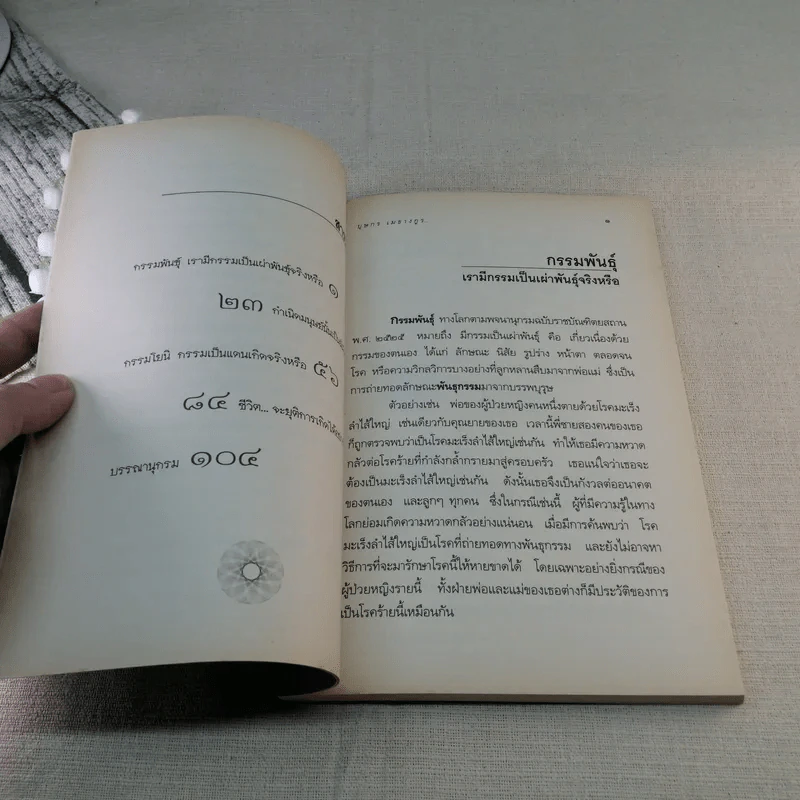 กรรมพันธุ์ เรามีกรรมเป็นเผ่าพันธุ์จริงหรือ ๑
๒๓ กำเนิดมนุษย์นั้นเป็น
กรรมโยนิ กรรมเป็นแดนเกิดจริงหรือ ๕๖
๘๔ ชีวิต... จะยุติการเกิดได้
บรรณานุกรม ๑๐๔
กรรมพันธุ์
เรามีกรรมเป็นเผ่าพันธุ์จริงหรือ
กรรมพันธุ์ ทางโลกตามพจนานุกรมฉบับราชบัณฑิตยสถาน
พ.ศ. ๒๕๒๕ หมายถึง มีกรรมเป็นเผ่าพันธุ์ คือ เกี่ยวเนื่องด้วย
กรรมของตนเอง ได้แก่ ลักษณะ นิสัย รูปร่าง หน้าตา ตลอดจน
โรค หรือความวิกลวิการบางอย่างที่ลูกหลานสืบมาจากพ่อแม่ ซึ่งเป็น
การถ่ายทอดลักษณะพันธุกรรมมาจากบรรพบุรุษ
ตัวอย่างเช่น พ่อของผู้ป่วยหญิงคนหนึ่งตายด้วยโรคมะเร็ง
ลำไส้ใหญ่ เช่นเดียวกับคุณยายของเธอ เวลานี้พี่ชายสองคนของเธอ
ก็ถูกตรวจพบว่าเป็นโรคมะเร็งลำไส้ใหญ่เช่นกัน ทำให้เธอมีความหวาด
กลัวต่อโรคร้ายที่กำลังกล้ำกรายมาสู่ครอบครัว เธอแน่ใจว่าเธอจะ
ต้องเป็นมะเร็งลำไส้ใหญ่เช่นกัน ดังนั้นเธอจึงเป็นกังวลต่ออนาคต
ของตนเอง และลูกๆ ทุกคน ซึ่งในกรณีเช่นนี้ ผู้ที่มีความรู้ในทาง
โลกย่อมเกิดความหวาดกลัวอย่างแน่นอน เมื่อมีการค้นพบว่า โรค
มะเร็งลำไส้ใหญ่เป็นโรคที่ถ่ายทอดทางพันธุกรรม และยังไม่อาจหา
วิธีการที่จะมารักษาโรคนี้ให้หายขาดได้ โดยเฉพาะอย่างยิ่งกรณีของ
ผู้ป่วยหญิงรายนี้ ทั้งฝ่ายพ่อและแม่ของเธอต่างก็มีประวัติของการ
เป็นโรคร้ายนี้เหมือนกัน